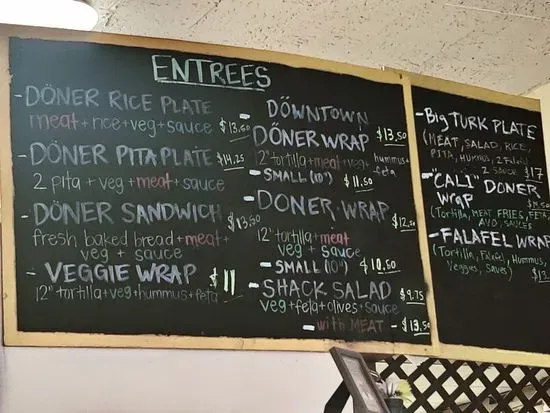 ENTREES
- DÖNER RICE PLATE
meat + rice + veg + sauce $13.50
- DÖNER PITA PLATE $14.25
2 pita + veg + meat + sauce
- DÖNER SANDWICH $13.50
fresh baked bread + meat +
veg + sauce
- VEGGIE WRAP $11
12" tortilla + veg + hummus + feta
- DÖWNTOWN
DÖNER WRAP $13.50
12" tortilla + meat + veg + hummus + feta
- SMALL (10") $11.50
- DONER WRAP $12.50
12" tortilla + meat
veg + sauce
- SMALL (10") $10.50
- SHACK SALAD $9.75
veg + feta + olives + sauce
- with MEAT - $13.50
- Big TURK PLATE
(MEAT, SALAD, RICE,
PITA, HUMMUS, 2 Falafel
2 SAUCE $17
- "CALI" DONER
WRAP
(Tortilla, MEAT, FRIES, FETA,
AVO, SAUCES)
- FALAFEL WRAP
(Tortilla, Falafel, Hummus,
Veggies, Saves)